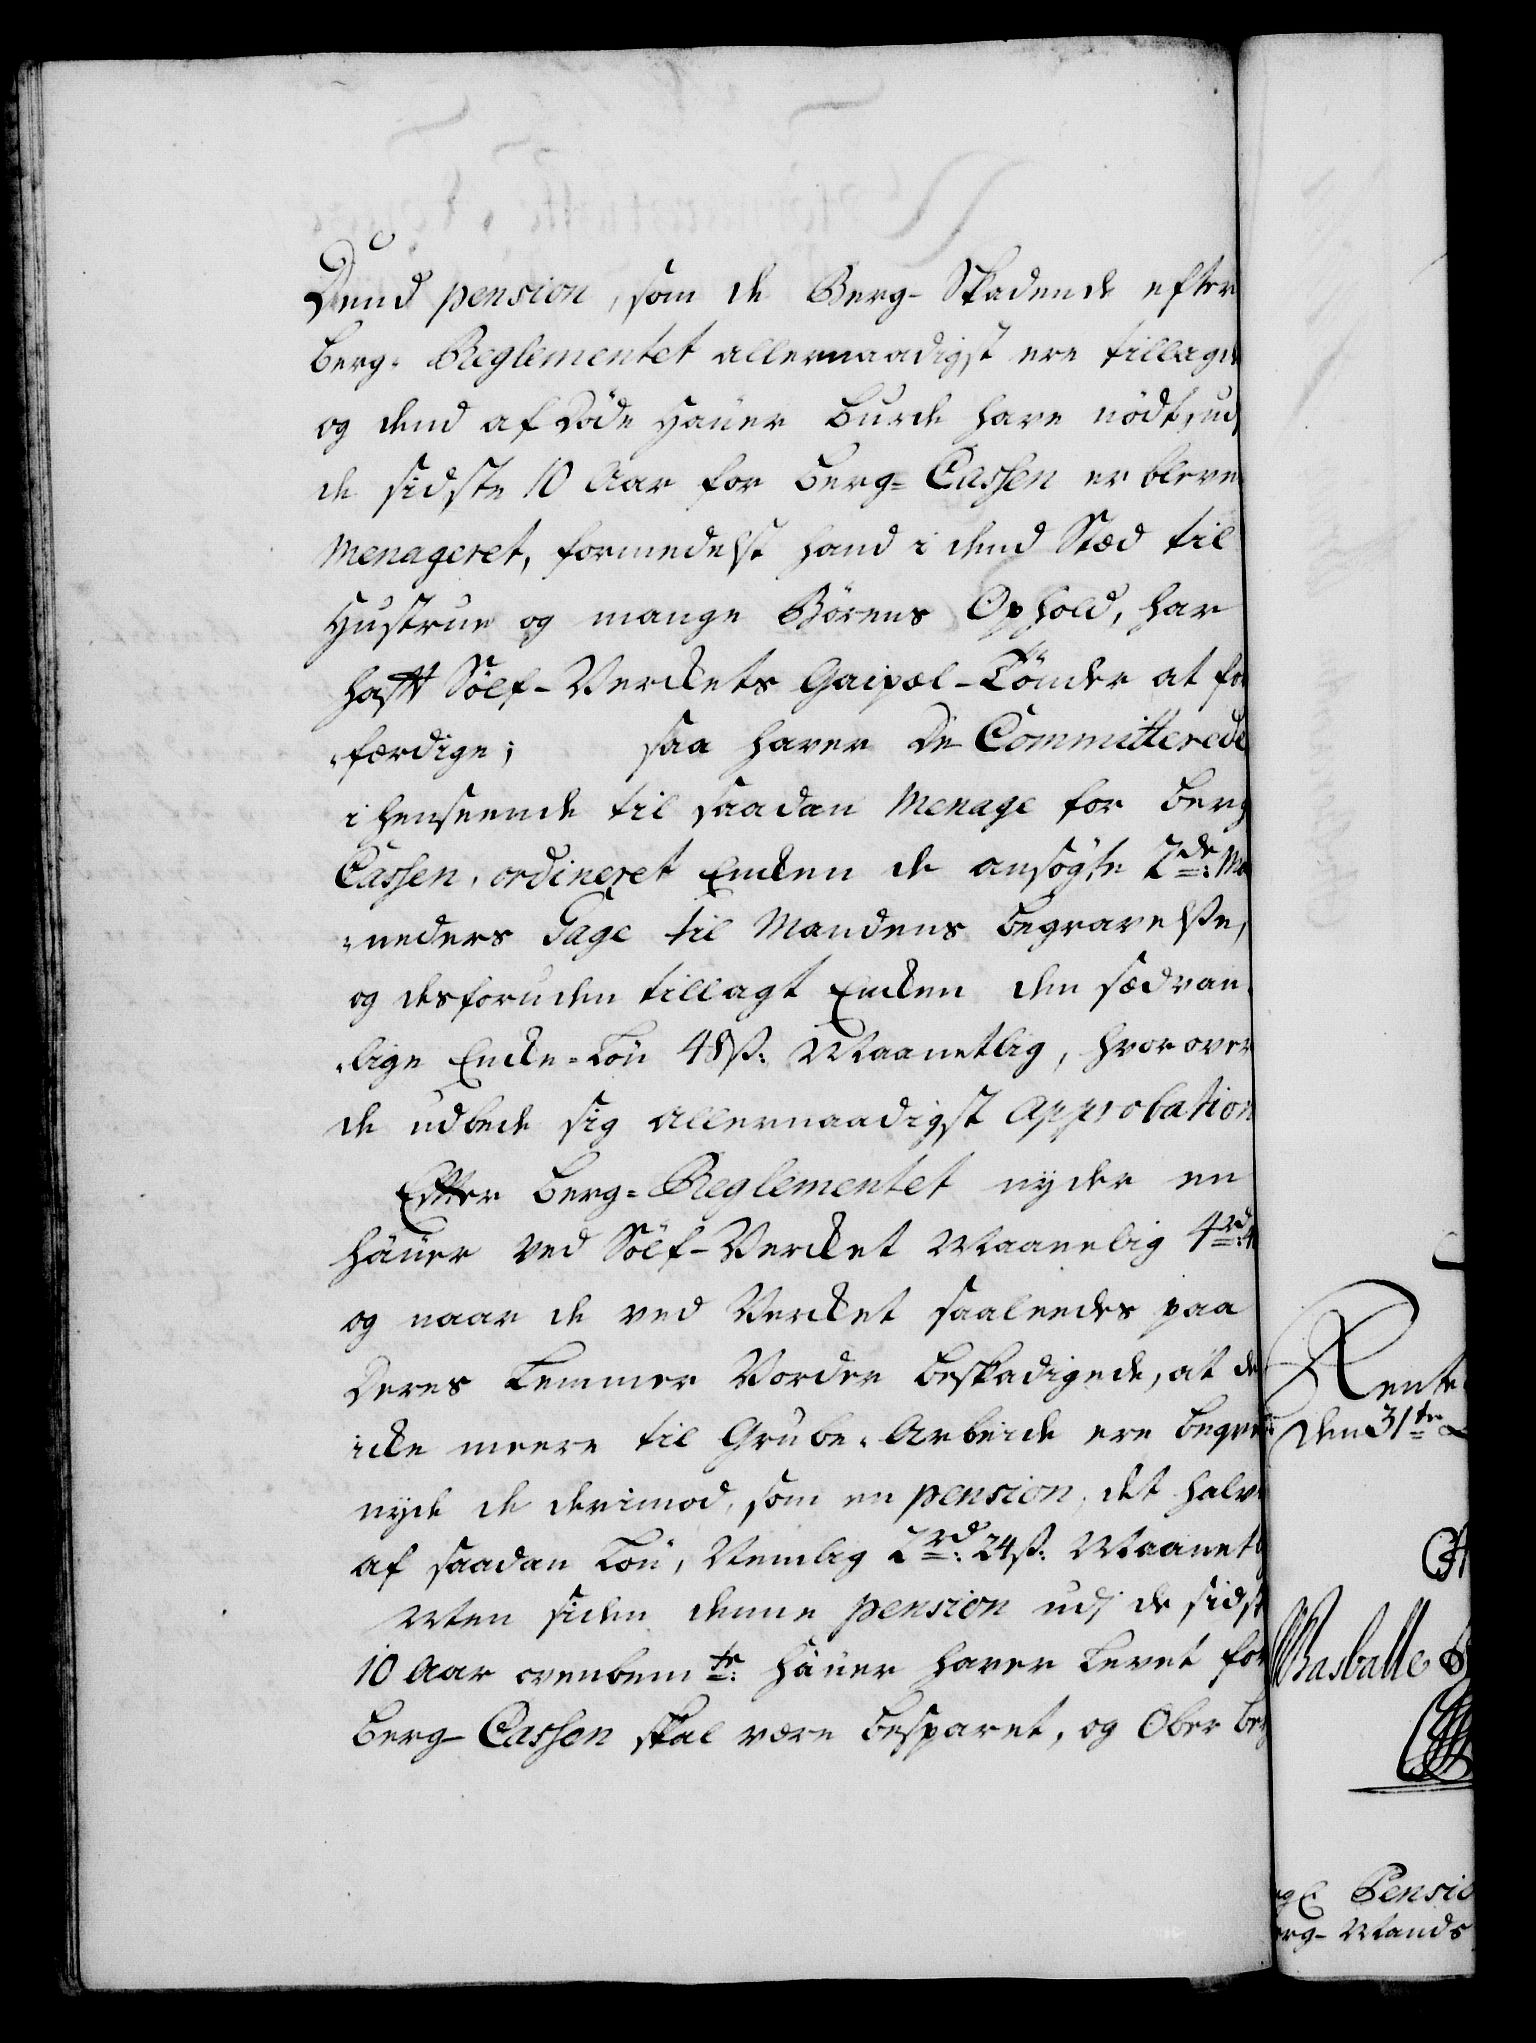 Dend pension, som de Berg-Skadende efter
Berg-Reglementet allernaadigst ere tillagde
og dend afdöde Hauer burde have nödt, ud,
de sidste 10 Aar for Berg-Cassen er bleven
menageret, formedelst hand i dend Stæd til
Hustrue og mange Börens Ophold, har
hafft Sölf-Verckets Gaipel-Tönder at for
færdige; saa haver De Committerede
i henseende til saadan Menage for Berg
Cassen, ordineret Encken de ansögte 2de Maa
neders Gage til Mandens Begravelse,
og desforuden tillagt Encken den sædvan
lige Encke-Lön 48 ß: Maanetlig, hvorover
de udbede sig allernaadigst Approbation
Effter Berg-Reglementet nyder en
Häuer ved Sölf-Vercket Maanelig 4 rd:
og naar de ved Vercket saaleedes paa
Deres Lemmer vorder beskadigede, at de
icke meere til Grube-Arbeide ere beqvem
nyde de derimod, som en pension, det halve
af saadan Lön, Nemlig 2 rd: 24 ß: Maanetl
Men siden denne pension udj de sidste
10 Aar ovenbemte: Häuer haver levet for
Berg-Cassen skal være besparet, og Ober Berg
Rente
den 31te
Basballe
Pensio
Mands